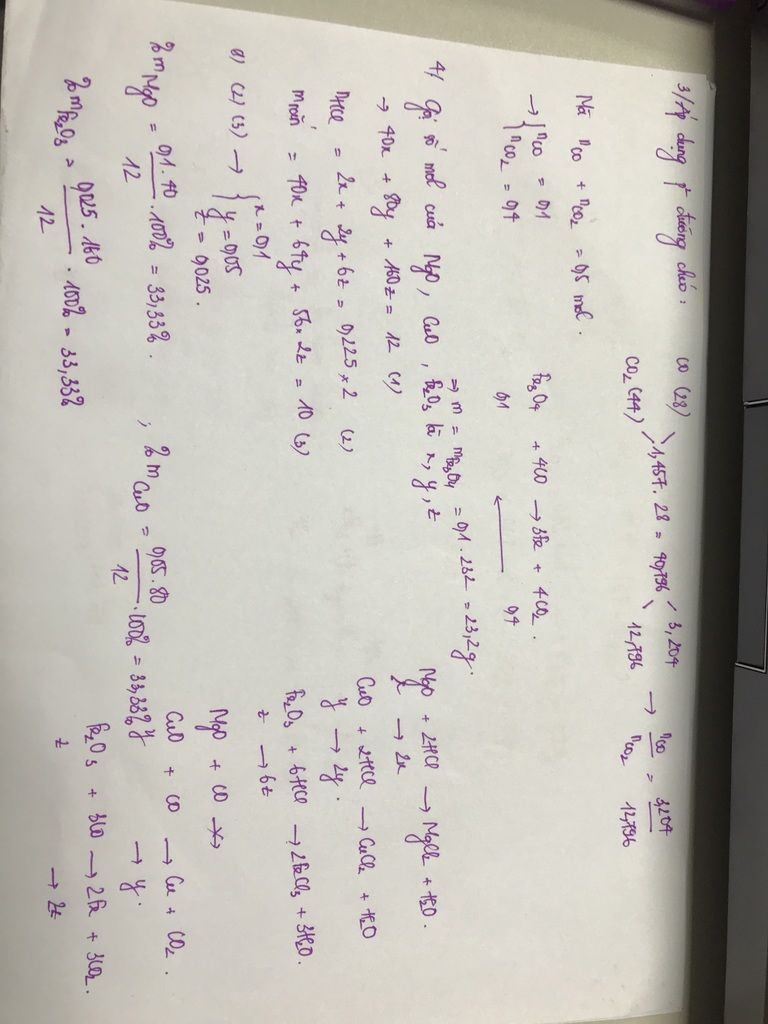 3/ Áp dụng p² đường chéo:
CO (28) 3,204
1,457.28 = 40,796 → nCO / nCO₂ = 3,204 / 12,796
CO₂ (44) 12,796
Mà nCO + nCO₂ = 0,5 mol.
→ { nCO = 0,1
nCO₂ = 0,4
Fe₃O₄ + 4CO → 3Fe + 4CO₂.
0,1 ← 0,4
⇒ m = mFe₃O₄ = 0,1.232 = 23,2g.
4/ Gọi số mol của MgO, CuO, Fe₂O₃ là x, y, z
→ 40x + 80y + 160z = 12 (1)
nHCl = 2x + 2y + 6z = 0,225 × 2 (2)
m rắn = 40x + 64y + 56×2z = 10 (3)
(1) (2) (3) → { x = 0,1
y = 0,05
z = 0,025.
%mMgO = 0,1.40 / 12 .100% = 33,33%. ; %mCuO = 0,05.80 / 12 .100% = 33,33%
%mFe₂O₃ = 0,025.160 / 12 .100% = 33,33%
MgO + 2HCl → MgCl₂ + H₂O.
x → 2x
CuO + 2HCl → CuCl₂ + H₂O
y → 2y.
Fe₂O₃ + 6HCl → 2FeCl₃ + 3H₂O.
z → 6z
MgO + CO -×->
CuO + CO → Cu + CO₂.
y → y.
Fe₂O₃ + 3CO → 2Fe + 3CO₂.
z → 2z